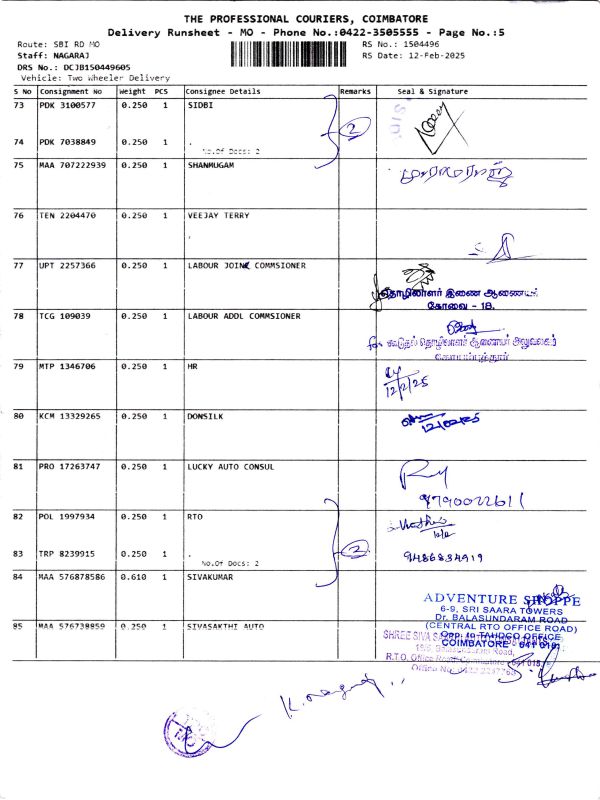 THE PROFESSIONAL COURIERS, COIMBATORE
Delivery Runsheet - MO - Phone No.:0422-3505555 - Page No.:5
Route: SBI RD MO
RS No.: 1504496
Staff: NAGARAJ
RS Date: 12-Feb-2025
DRS No.: DCJB150449605
Vehicle: Two Wheeler Delivery
S No Consignment No Weight PCS Consignee Details Remarks Seal & Signature
73 PDK 3100577 0.250 1 SIDBI
2
74 PDK 7038849 0.250 1 .
No.Of Docs: 2
75 MAA 707222939 0.250 1 SHANMUGAM
76 TEN 2204470 0.250 1 VEEJAY TERRY
.
77 UPT 2257366 0.250 1 LABOUR JOINT COMMSIONER
தொழிலாளர் இணை ஆணையர்
கோவை - 18.
78 TCG 109039 0.250 1 LABOUR ADDL COMMSIONER
கூடுதல் தொழிலாளர் ஆணையர் அலுவலகம்
கோயம்புத்தூர்
79 MTP 1346706 0.250 1 HR
12/2/25
80 KCM 13329265 0.250 1 DONSILK
12/02/25
81 PRO 17263747 0.250 1 LUCKY AUTO CONSUL
9790022611
82 POL 1997934 0.250 1 RTO
83 TRP 8239915 0.250 1 .
2
9486834919
No.Of Docs: 2
84 MAA 576878586 0.610 1 SIVAKUMAR
ADVENTURE SHOPPE
6-9, SRI SAARA TOWERS
Dr. BALASUNDARAM ROAD
(CENTRAL RTO OFFICE ROAD)
85 MAA 576738859 0.250 1 SIVASAKTHI AUTO
Opp. to TAHDCO OFFICE
COIMBATORE - 641 018.
SHREE SIVA
Balasundaram Road,
R.T.O. Office Road, Coimbatore - 641 018.
Office No.